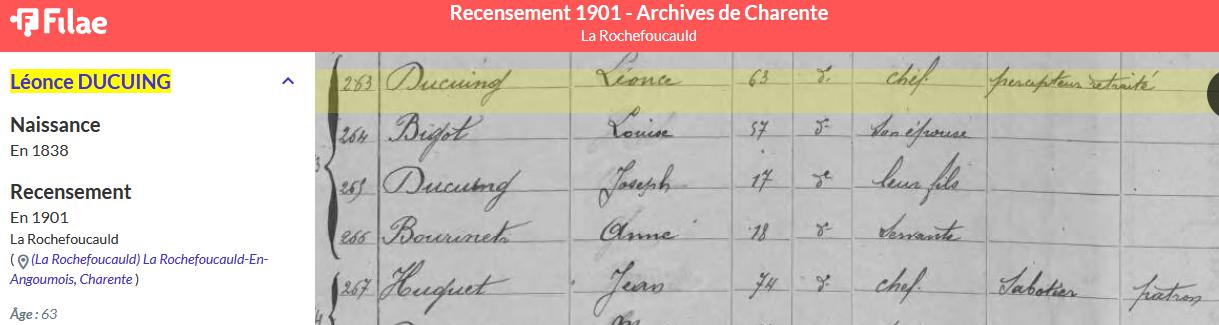 Filae
Recensement 1901 - Archives de Charente
La Rochefoucauld
Léonce DUCUING
Naissance
En 1838
Recensement
En 1901
La Rochefoucauld
( (La Rochefoucauld) La Rochefoucauld-En-
Angoumois, Charente )
Âge : 63
263 Ducuing Léonce 63 d° chef percepteur retraité
264 Bigot Louise 57 d° son épouse
265 Ducuing Joseph 17 d° leur fils
266 Bourinet Anne 18 d° servante
267 Huguet Jean 74 d° chef Sabotier patron